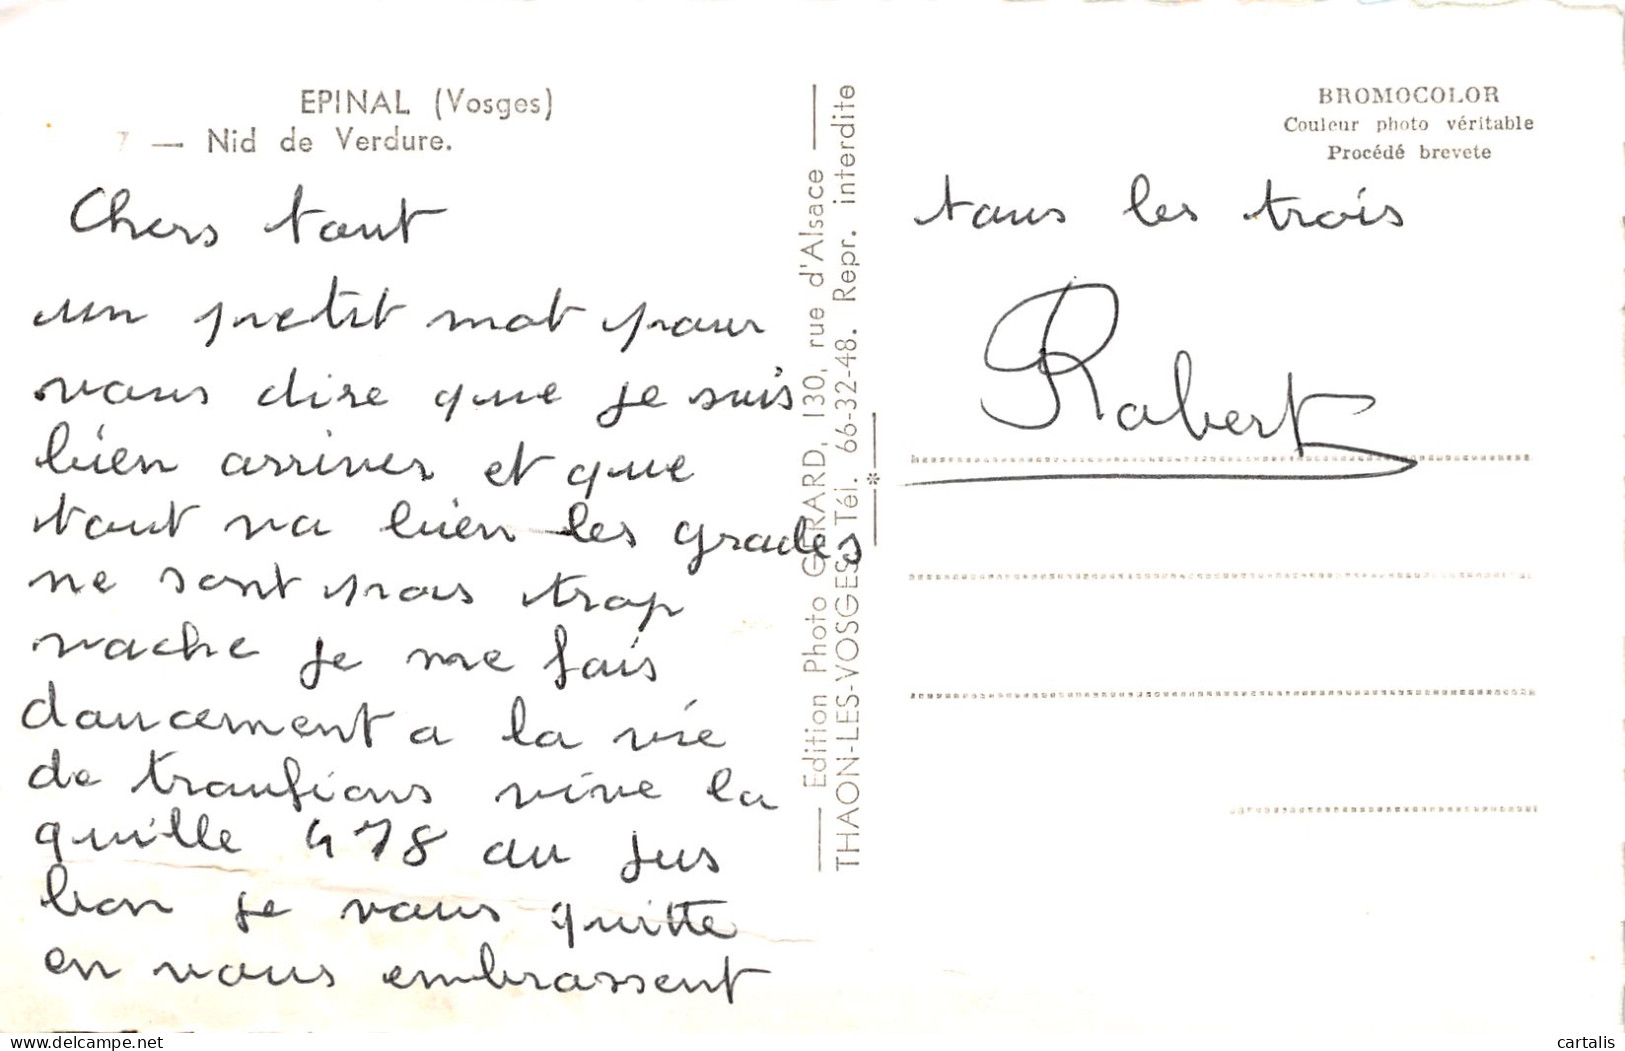 EPINAL (Vosges)
7 — Nid de Verdure.
Chers tout
un petit mot pour
vous dire que je suis
bien arriver et que
tout va bien les grades
ne sont pas trop
vache je me fais
doucement a la vie
de troufions vive la
quille 478 au jus
bon je vous quitte
en vous embrassent
Edition Photo GIRARD, 130, rue d'Alsace
THAON-LES-VOSGES Tél. 66-32-48. Repr. interdite
BROMOCOLOR
Couleur photo véritable
Procédé brevete
tous les trois
Robert
www.cartalis.com
cartalis